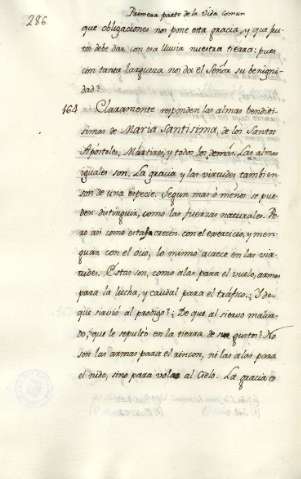 286
Primera parte de la Vida comun
que obligaciones nos pone esta gracia, y que fru
tos debe dar con esa lluvia nuestra tierra: pues
con tanta largueza nos da el Señor su benigni
dad?
464 Claramente responden las almas benditi
simas de Maria Santisima, de los Santos
Apostoles, Martires, y todos los demas. Las almas
iguales son. La gracia y las virtudes tambien
son de una especie. Segun mas ò menos se pue
den distinguir, como las fuerzas naturales. Pe
ro asi como estas crecen con el exercicio, y men
guan con el ocio, lo mismo acaece en las vir
tudes. Estas son, como alas para el vuelo, armas
para la lucha, y caudal para el trafico. ¿Y de
que sirvió al ¿De que al siervo malva
do, que le sepultò en la tierra de sus gustos? No
son las armas para el rincon, ni las alas para
el nido, sino para volar al Cielo. La gracia co